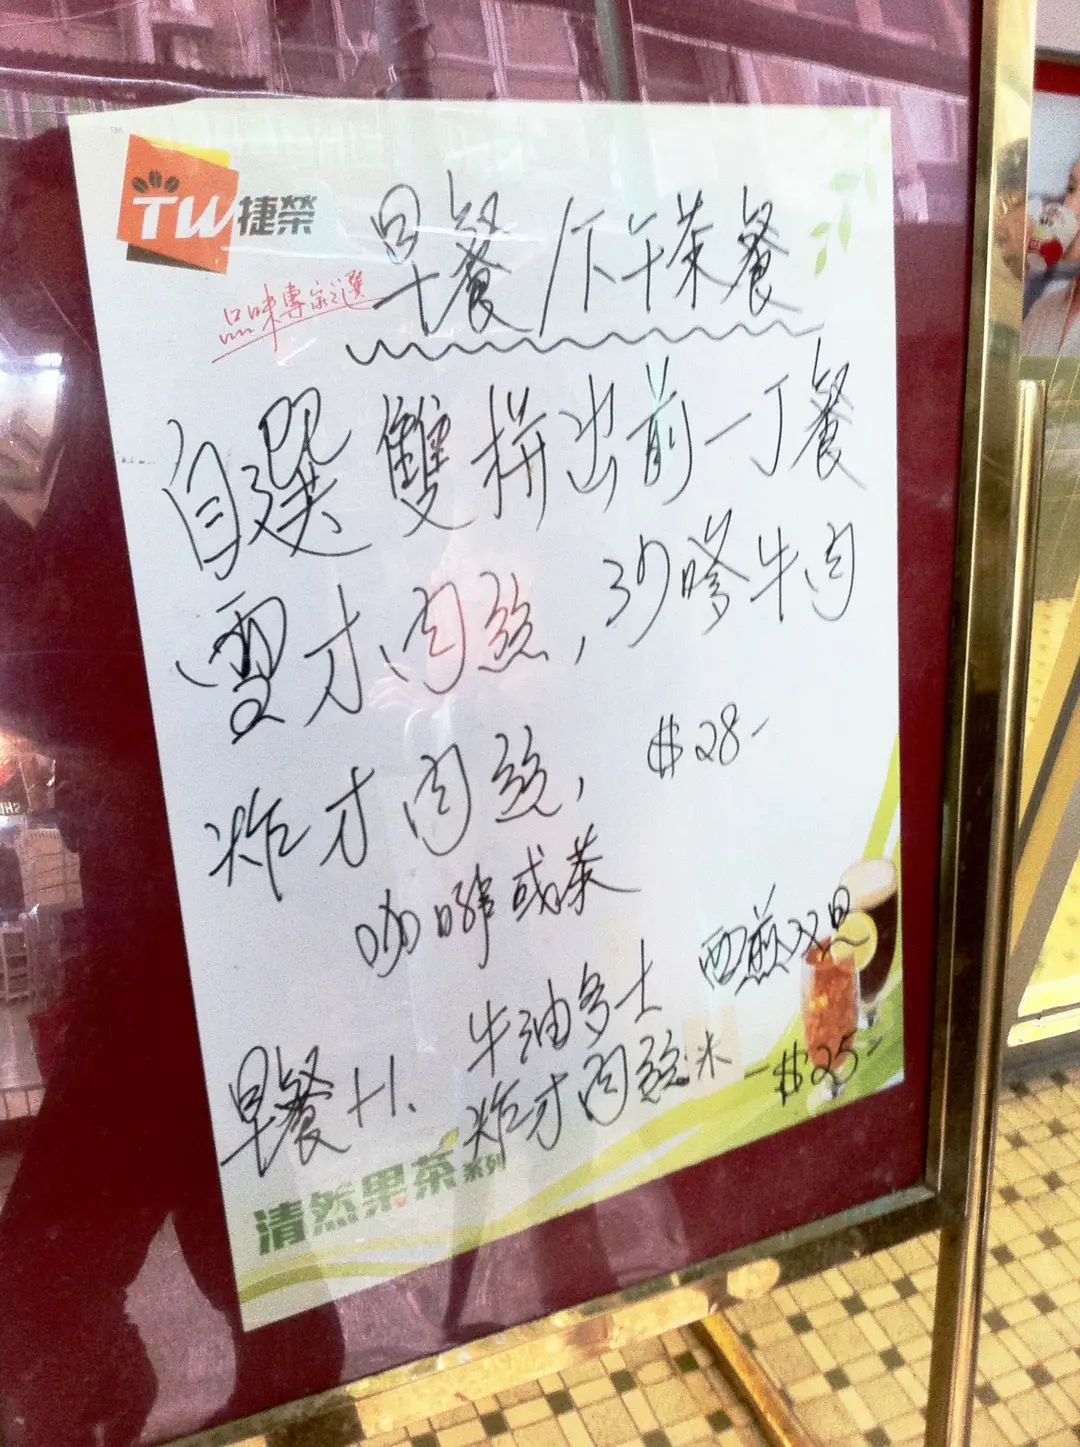 TW捷榮
品味專家之選
早餐/下午茶餐
自選雙拼出前一丁餐
雪才肉絲,沙嗲牛肉
炸才肉絲, $28-
咖啡或茶
牛油多士 西煎双旦
早餐 H. 炸才肉絲米 -$25-
清然果茶系列